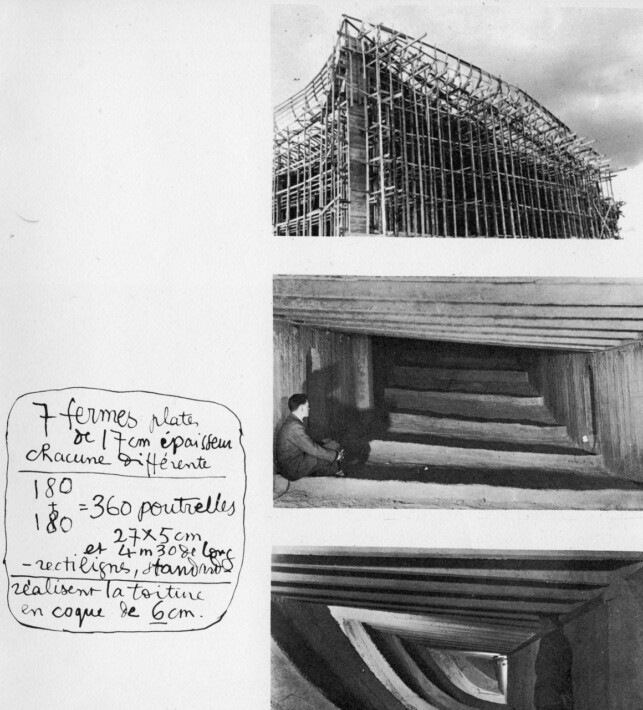 7 fermes plates
de 17cm épaisseur
chacune différente
180
+
180
= 360 poutrelles
27×5cm
et 4m30 de long
- rectilignes, standards
réalisent la toiture
en coque de 6cm.